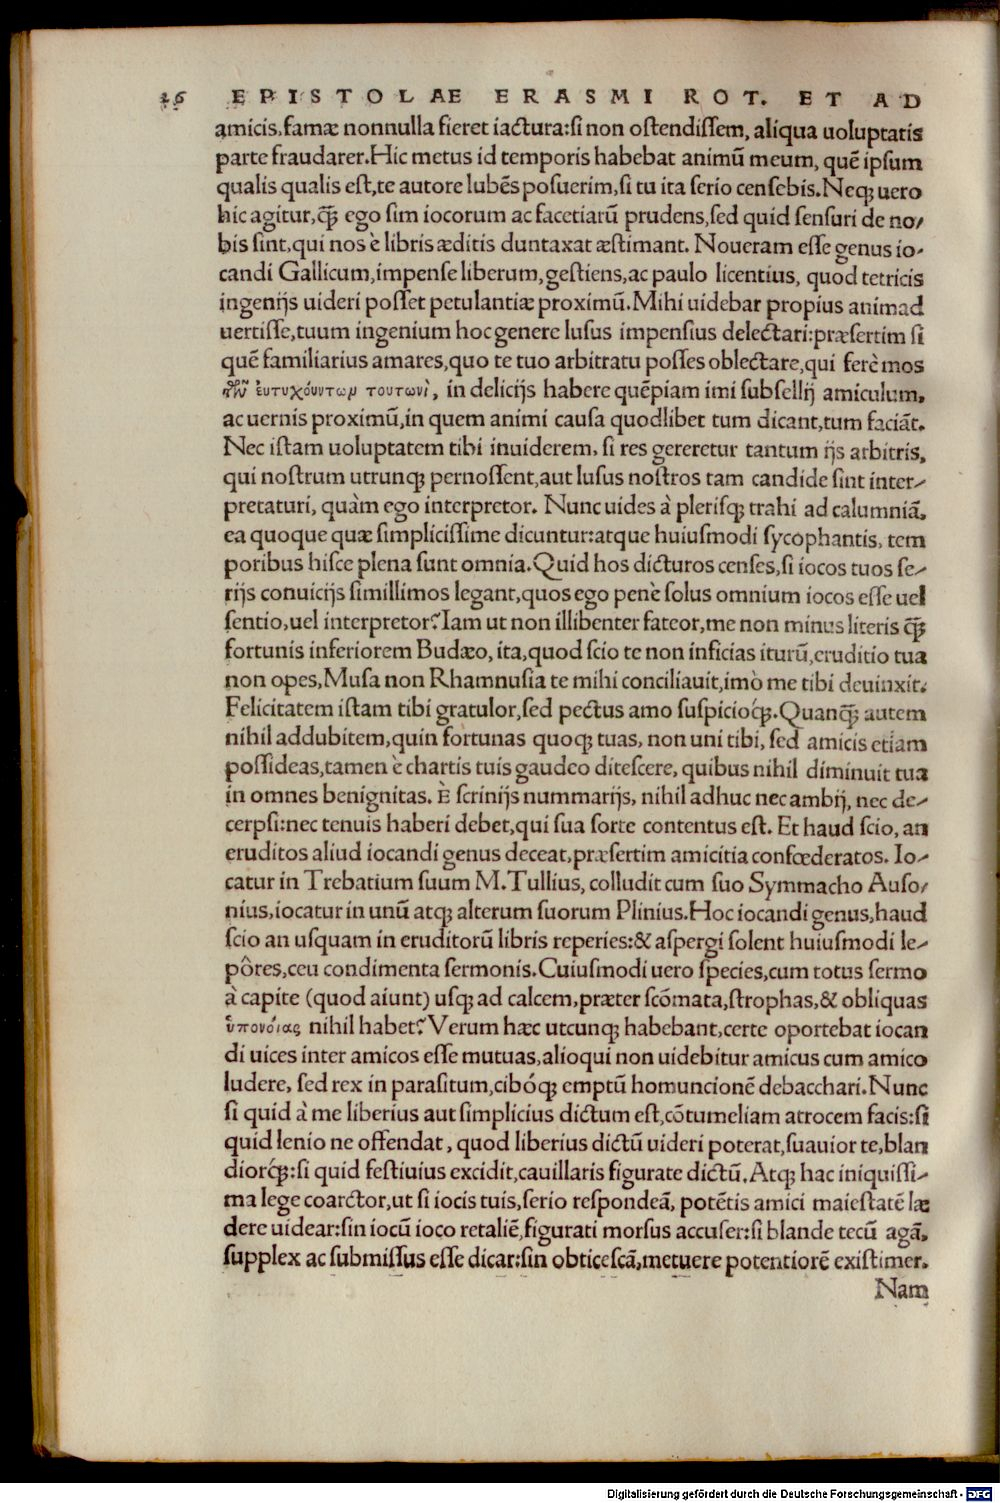 26 EPISTOLAE ERASMI ROT. ET AD
amicis, famæ nonnulla fieret iactura: si non ostendissem, aliqua uoluptatis
parte fraudarer. Hic metus id temporis habebat animū meum, quē ipsum
qualis qualis est, te autore lubēs posuerim, si tu ita serio censebis. Neqꝫ uero
hic agitur, ꝗ̃ ego sim iocorum ac facetiarū prudens, sed quid sensuri de no/
bis sint, qui nos è libris æditis duntaxat æstimant. Noueram esse genus io-
candi Gallicum, impense liberum, gestiens, ac paulo licentius, quod tetricis
ingenijs uideri posset petulantiæ proximū. Mihi uidebar propius animad
uertisse, tuum ingenium hoc genere lusus impensius delectari: præsertim si
quē familiarius amares, quo te tuo arbitratu posses oblectare, qui ferè mos
τῶν εὐτυχόυντων τουτωνὶ, in delicijs habere quēpiam imi subsellij amiculum,
ac uernis proximū, in quem animi causa quodlibet tum dicant, tum faciāt.
Nec istam uoluptatem tibi inuiderem, si res gereretur tantum ijs arbitris,
qui nostrum utrunqꝫ pernossent, aut lusus nostros tam candide sint inter-
pretaturi, quàm ego interpretor. Nunc uides à plerisqꝫ trahi ad calumniā,
ea quoque quæ simplicissime dicuntur: atque huiusmodi sycophantis, tem
poribus hisce plena sunt omnia. Quid hos dicturos censes, si iocos tuos se-
rijs conuicijs simillimos legant, quos ego penè solus omnium iocos esse uel
sentio, uel interpretor? Iam ut non illibenter fateor, me non minus literis ꝗ̃
fortunis inferiorem Budæo, ita, quod scio te non inficias iturū, eruditio tua
non opes, Musa non Rhamnusia te mihi conciliauit, imò me tibi deuinxit.
Felicitatem istam tibi gratulor, sed pectus amo suspicioqꝫ. Quanꝗ̃ autem
nihil addubitem, quin fortunas quoqꝫ tuas, non uni tibi, sed amicis etiam
possideas, tamen è chartis tuis gaudeo ditescere, quibus nihil diminuit tua
in omnes benignitas. E scrinijs nummarijs, nihil adhuc nec ambij, nec de-
cerpsi: nec tenuis haberi debet, qui sua sorte contentus est. Et haud scio, an
eruditos aliud iocandi genus deceat, præsertim amicitia confœderatos. Io-
catur in Trebatium suum M. Tullius, colludit cum suo Symmacho Auso/
nius, iocatur in unū atqꝫ alterum suorum Plinius. Hoc iocandi genus, haud
scio an usquam in eruditorū libris reperies: & aspergi solent huiusmodi le-
pôres, ceu condimenta sermonis. Cuiusmodi uero species, cum totus sermo
à capite (quod aiunt) usqꝫ ad calcem, præter scōmata, strophas, & obliquas
ὑπονοίας nihil habet? Verum hæc utcunqꝫ habebant, certe oportebat iocan
di uices inter amicos esse mutuas, alioqui non uidebitur amicus cum amico
ludere, sed rex in parasitum, cibóqꝫ emptū homuncionē debacchari. Nunc
si quid à me liberius aut simplicius dictum est, cōtumeliam atrocem facis: si
quid lenio ne offendat, quod liberius dictū uideri poterat, suauior te, blan
diorqꝫ́: si quid festiuius excidit, cauillaris figurate dictū. Atqꝫ hac iniquissi-
ma lege coarctor, ut si iocis tuis, serio respondeā, potētis amici maiestatē læ
dere uidear: sin iocū ioco retaliē, figurati morsus accuser: si blande tecū agā,
supplex ac submissus esse dicar: sin obticescā, metuere potentiorē existimer.
Nam
Digitalisierung gefördert durch die Deutsche Forschungsgemeinschaft - DFG